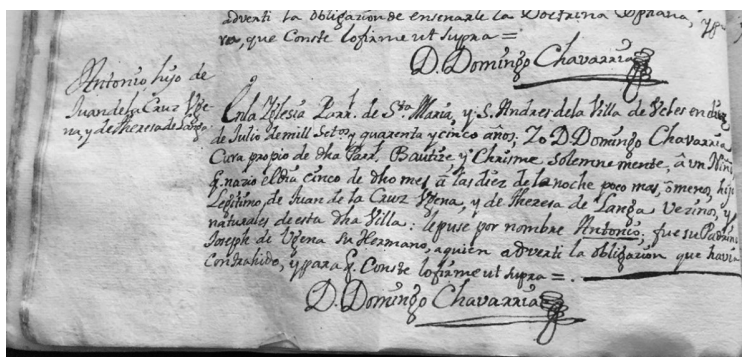 adverti la obligazion de enseñarle la Doctrina Xpriana, y pa
ra, que Conste lo firme ut supra =
D. Domingo Chavarria
Antonio, hijo de
Juan de la Cruz Vze-
na, y de Theresa de Langa
En la Yglesia Parr.l de S.ta Maria, y S. Andres de la Villa de Vcles en diez
de Julio de mill Setos, y quarenta y cinco años, Yo D. Domingo Chavarria
Cura propio de dha Parr.l Bautize, y Chrisme Solemnemente, â vn Niño
q. nazio el dia cinco de dho mes, â las diez de la noche poco mas, ô menos, hijo
Legitimo de Juan de la Cruz Vzena, y de Theresa de Langa Vezinos, y
naturales de esta dha Villa: le puse por nombre Antonio, fue su Padrino
Joseph de Vzena su Hermano, a quien adverti la obligazion que havia
Contrahido, y para q. Conste lo firme ut supra =.
D. Domingo Chavarria